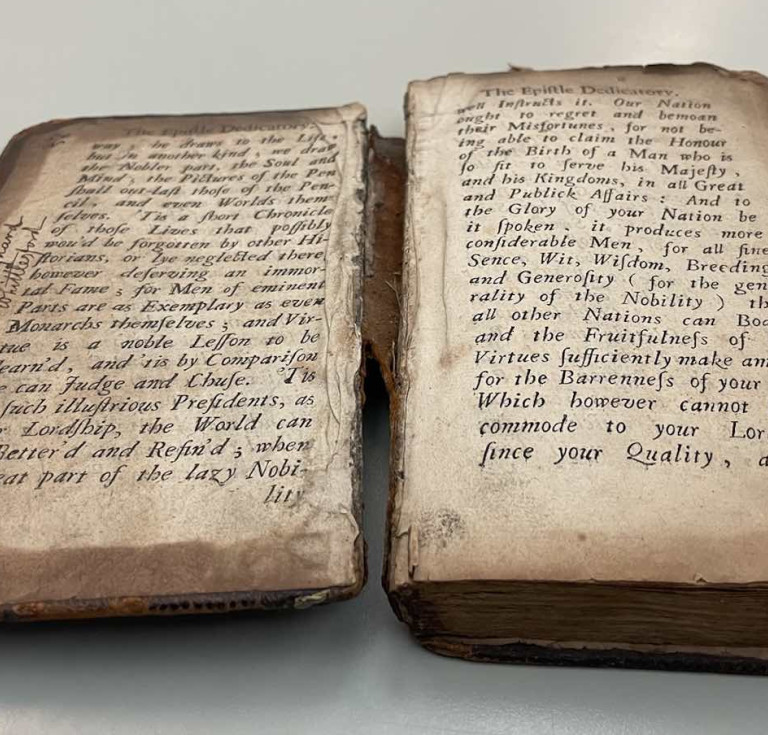 The Epistle Dedicatory.
way; he draws to the Life,
but in another kind; we draw
the Nobler part, the Soul and
Mind; the Pictures of the Pen
ſhall out-laſt thoſe of the Pen-
cil, and even Worlds them-
ſelves. 'Tis a ſhort Chronicle
of thoſe Lives that poſſibly
wou'd be forgotten by other Hi-
ſtorians, or lye neglected there
however deſerving an immor-
tal Fame; for Men of eminent
Parts are as Exemplary as even
Monarchs themſelves; and Vir-
tue is a noble Leſſon to be
learn'd, and 'tis by Compariſon
can Judge and Chuſe. 'Tis
ſuch illuſtrious Preſidents, as
Lordſhip, the World can
Better'd and Refin'd; when
part of the lazy Nobi-
lity
The Epiſtle Dedicatory.
well Inſtructs it. Our Nation
ought to regret and bemoan
their Misfortunes, for not be-
ing able to claim the Honour
of the Birth of a Man who is
ſo fit to ſerve his Majeſty,
and his Kingdoms, in all Great
and Publick Affairs: And to
the Glory of your Nation be
it ſpoken, it produces more
conſiderable Men, for all fine
Sence, Wit, Wiſdom, Breeding
and Generoſity (for the gen
rality of the Nobility) th
all other Nations can Boa
and the Fruitfulneſs of
Virtues ſufficiently make am
for the Barrenneſs of your
Which however cannot
commode to your Lor
ſince your Quality, a